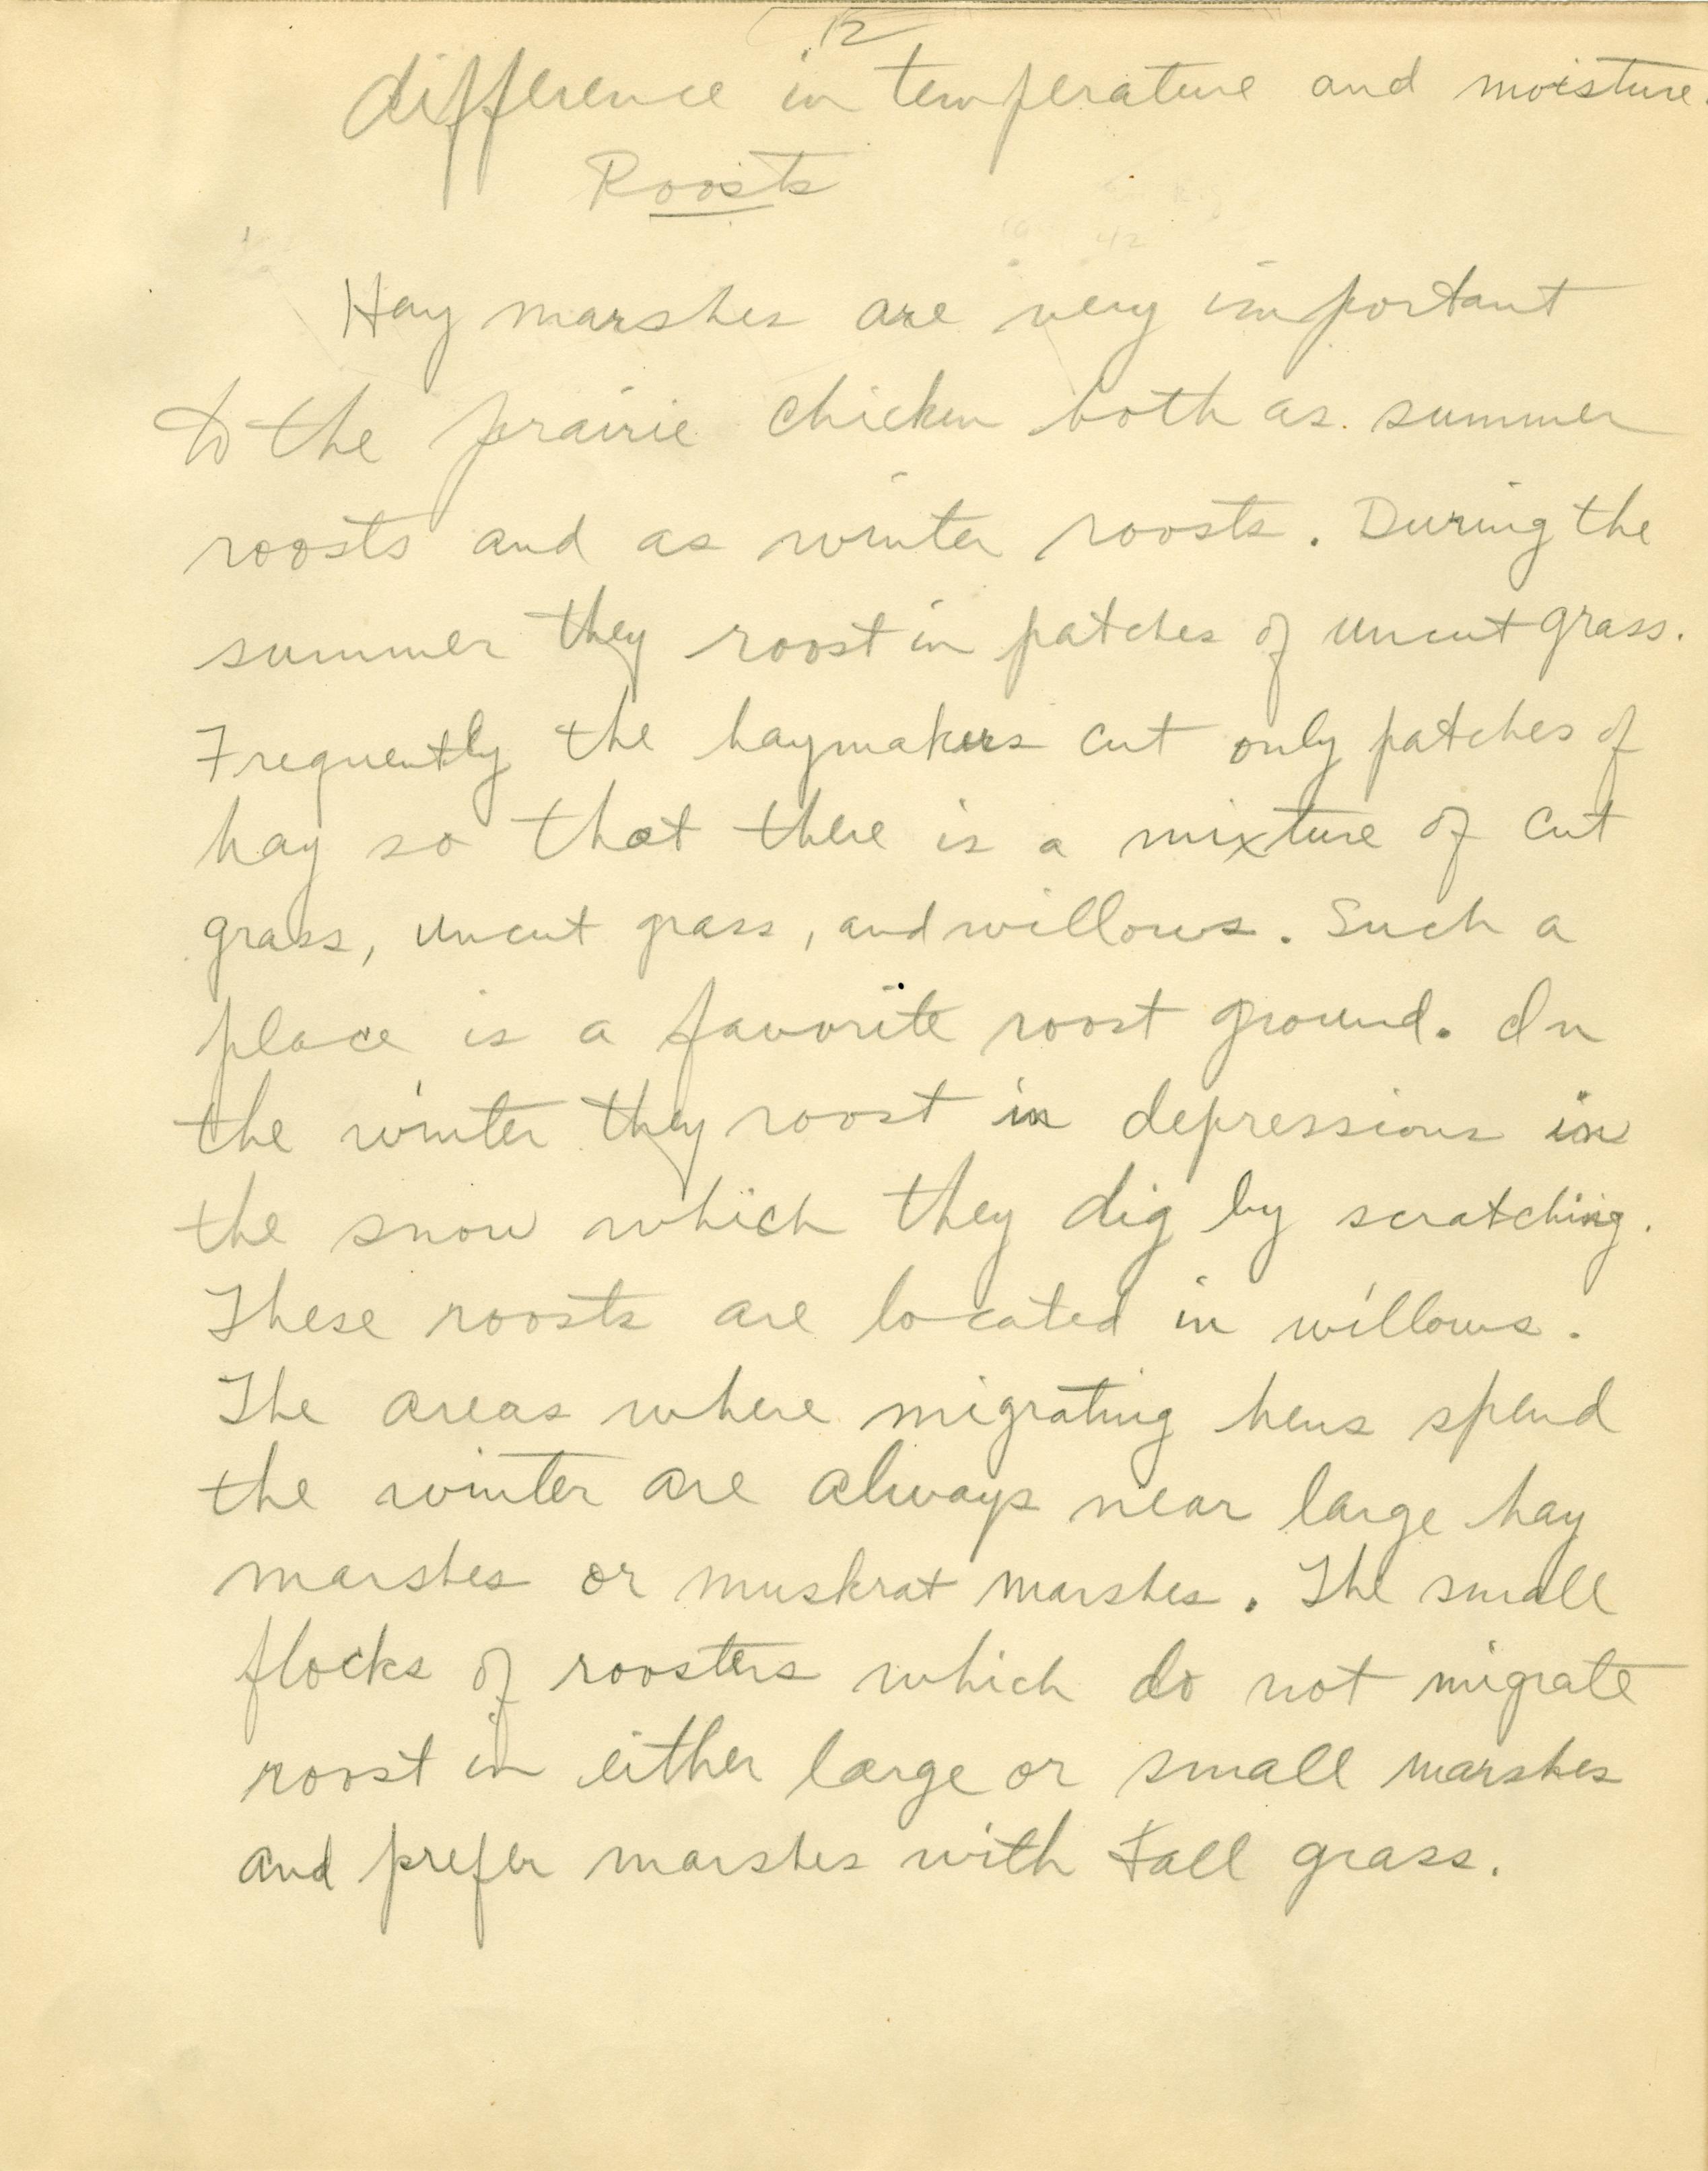 12
difference in temperature and moisture.
Roosts
Hay marshes are very important
to the prairie chicken both as summer
roosts and as winter roosts. During the
summer they roost in patches of uncut grass.
Frequently the haymakers cut only patches of
hay so that there is a mixture of cut
grass, uncut grass, and willows. Such a
place is a favorite roost ground. In
the winter they roost in depressions in
the snow which they dig by scratching.
These roosts are located in willows.
The areas where migrating hens spend
the winter are always near large hay
marshes or muskrat marshes. The small
flocks of roosters which do not migrate
roost in either large or small marshes
and prefer marshes with tall grass.